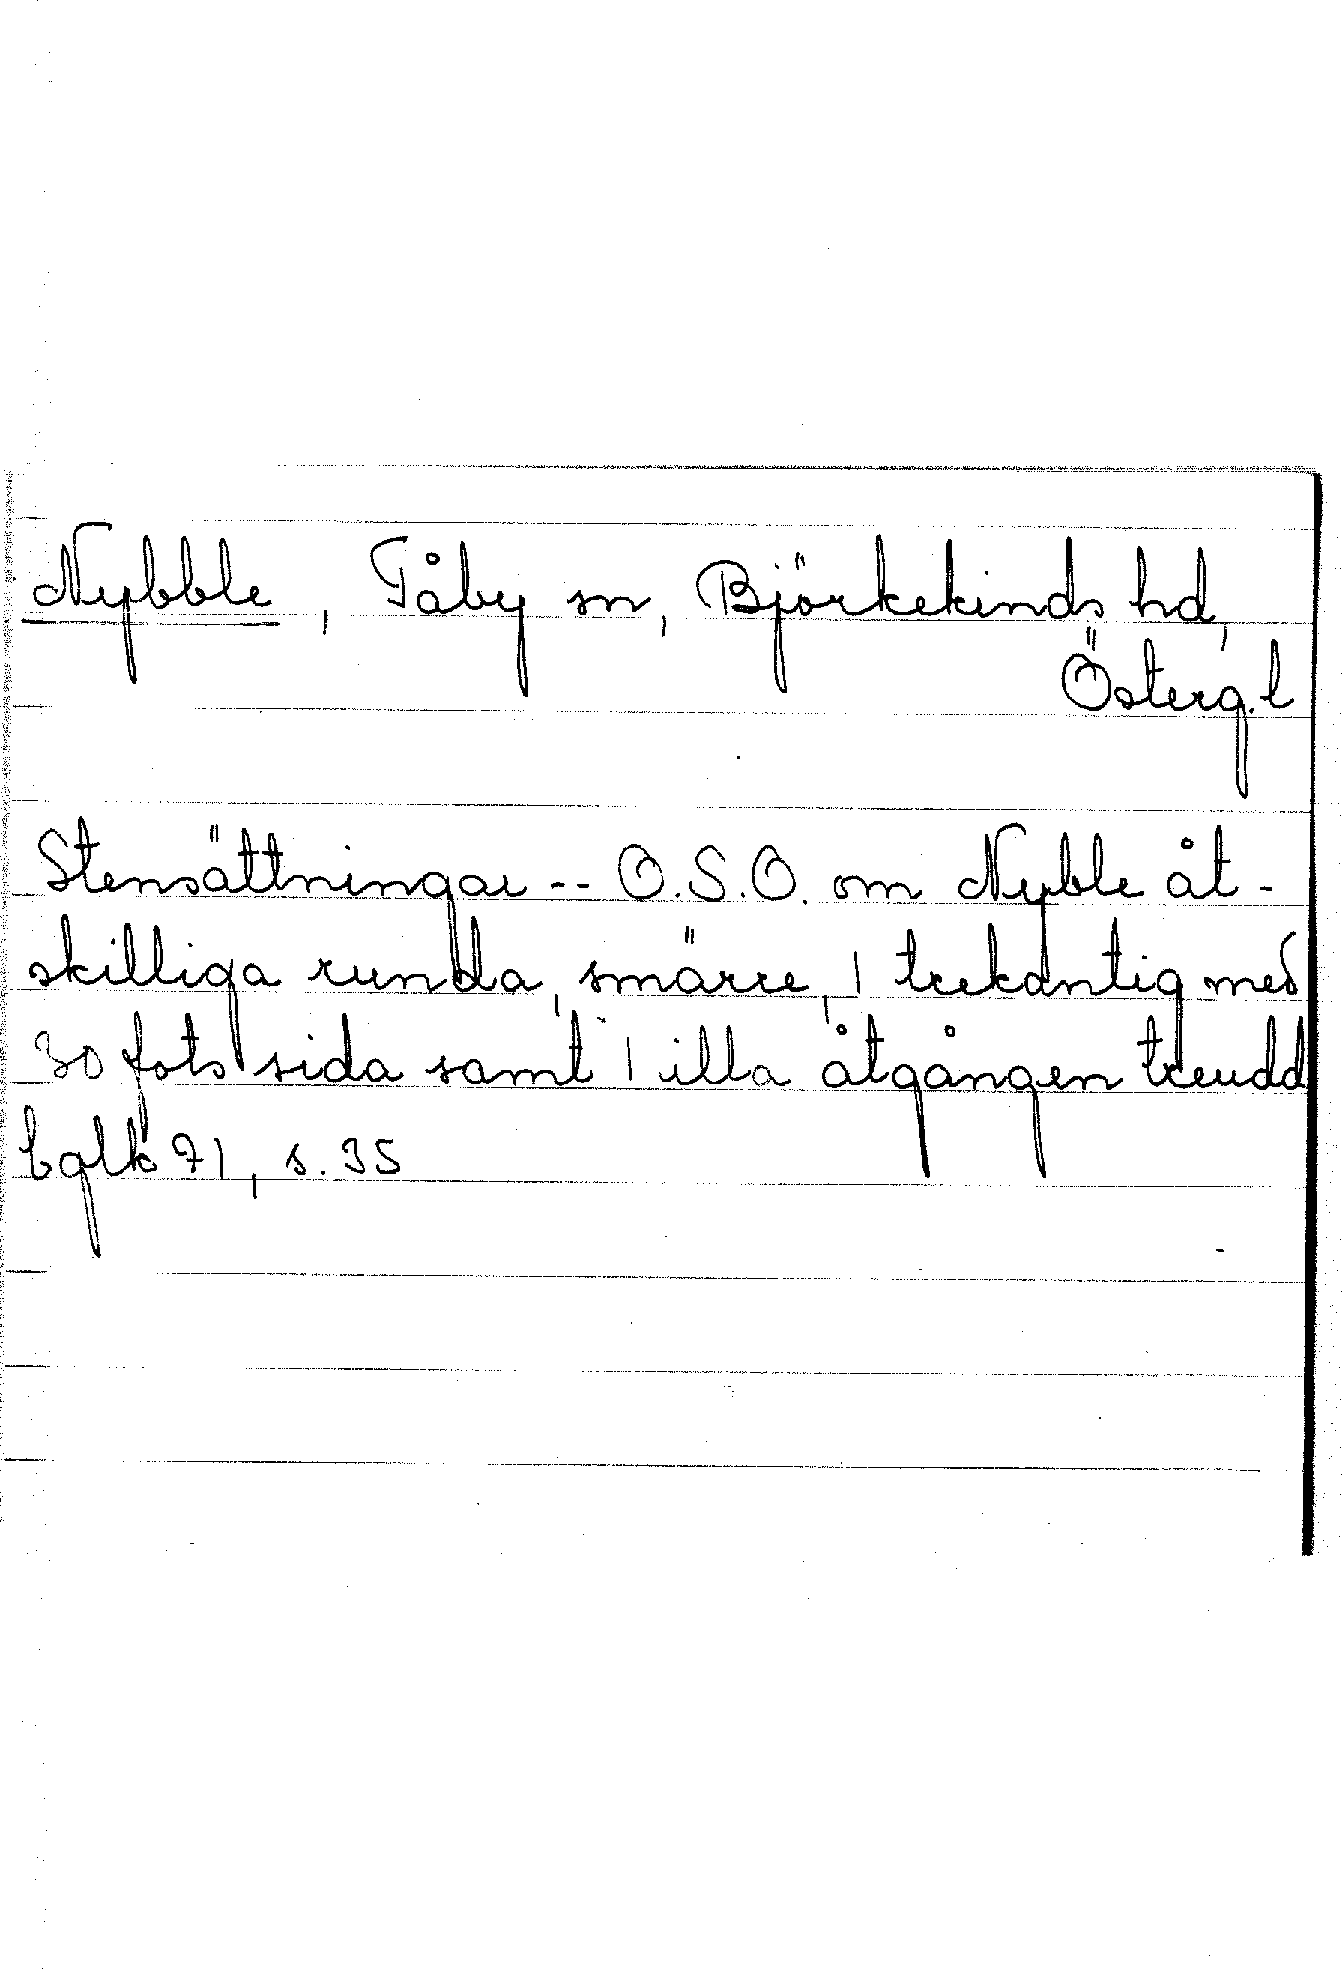 Nybble, Tåby sn, Björkekinds hd,
Österg.l
Stensättningar -- O.S.O. om Nybble åt-
skilliga runda, smärre, 1 trekantig med
30 fots sida samt 1 illa åtgången treudd
bglk 71, s. 35